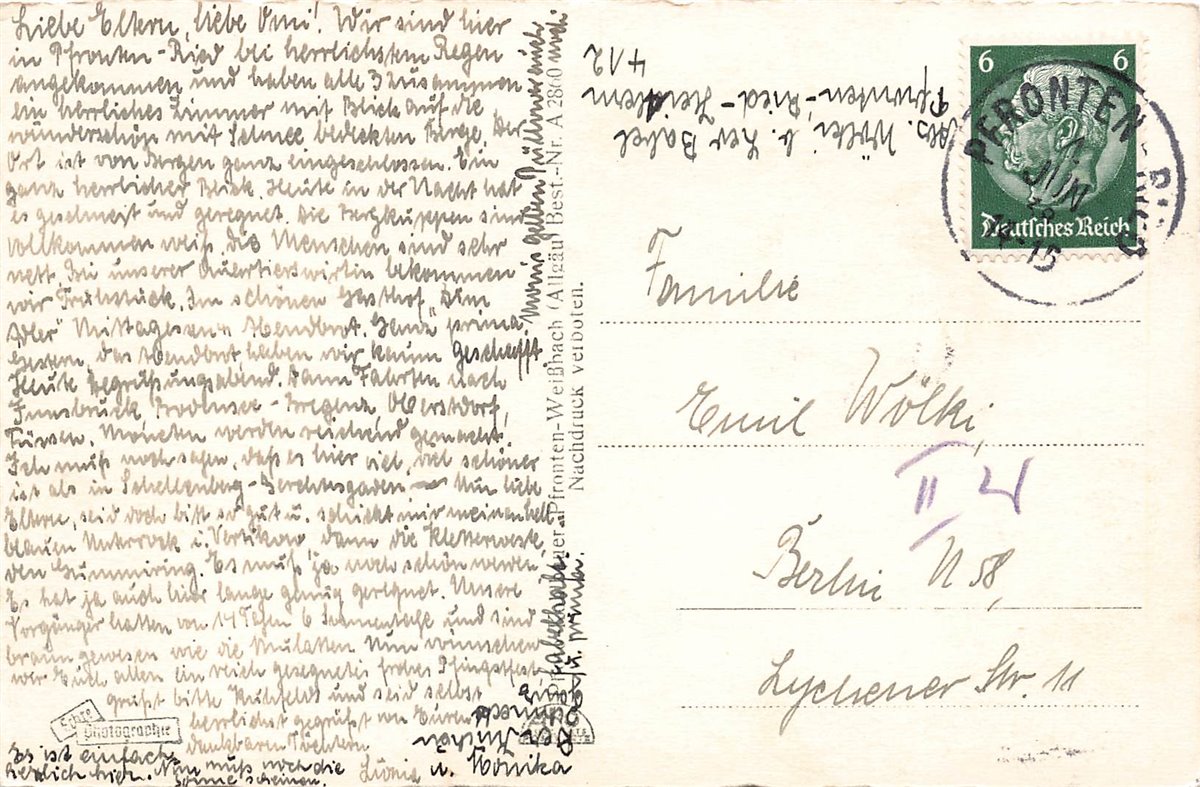 Liebe Eltern, liebe Omi! Wir sind hier
in Pfronten-Ried bei herrlichstem Regen
angekommen und haben alle 3 zusammen
ein herrliches Zimmer mit Blick auf die
wunderschön mit Schnee bedeckten Berge. Der
Ort ist von Bergen ganz eingeschlossen. Ein
ganz herrlicher Blick. Heute in der Nacht hat
es geschneit und geregnet. Die Bergkuppen sind
vollkommen weiß, die Menschen sind sehr
nett. Bei unserer Quartierswirtin bekommen
wir Frühstück. Im schönen Gasthof "Zum
Adler" Mittagessen u. Abendbrot. Ganz prima.
Gestern, das Abendbrot haben wir kaum geschafft.
Heute Begrüßungsabend. Dann Fahrten nach
Innsbruck, Bodensee - Bregenz, Oberstdorf,
Füssen. München werden reichend gemacht.
Ich muß noch sagen, daß es hier viel, viel schöner
ist als in Schellenberg-Berchtesgaden. Nun liebe
Eltern, seid doch bitte so gut u. schickt mir meinen hell
blauen Unterrock i. Vertikow, dann die Kletterweste,
den Gummiring. Es muß ja noch schön werden.
Es hat ja auch hier lange genug geregnet. Unsere
Vorgänger hatten von 14 Tagen 6 Sonnentage und sind
braun gewesen wie die Mulatten. Nun wünschen
wir Euch allen ein reich gesegnetes frohes Pfingstfest
grüßt bitte Kuhfelds und seid selbst
herrlichst gegrüßt von Euren
dankbaren Töchtern
u. Monika
Es ist einfach
herrlich hier. Nun muß noch die
Sonne scheinen.
Meinen gelben Pullover auch
u. prima.
Echte
Photographie
Pfronten-Weißbach (Allgäu) Best.-Nr. A 2860
Nachdruck verboten.
Abs. Wölki b. Babel
Pfronten-Ried-
412
6 6
Deutsches Reich
PFRONTEN - RIED
1. JUN
14-15
Familie
Emil Wölki,
II 4
Berlin N 58,
Lychener Str. 11